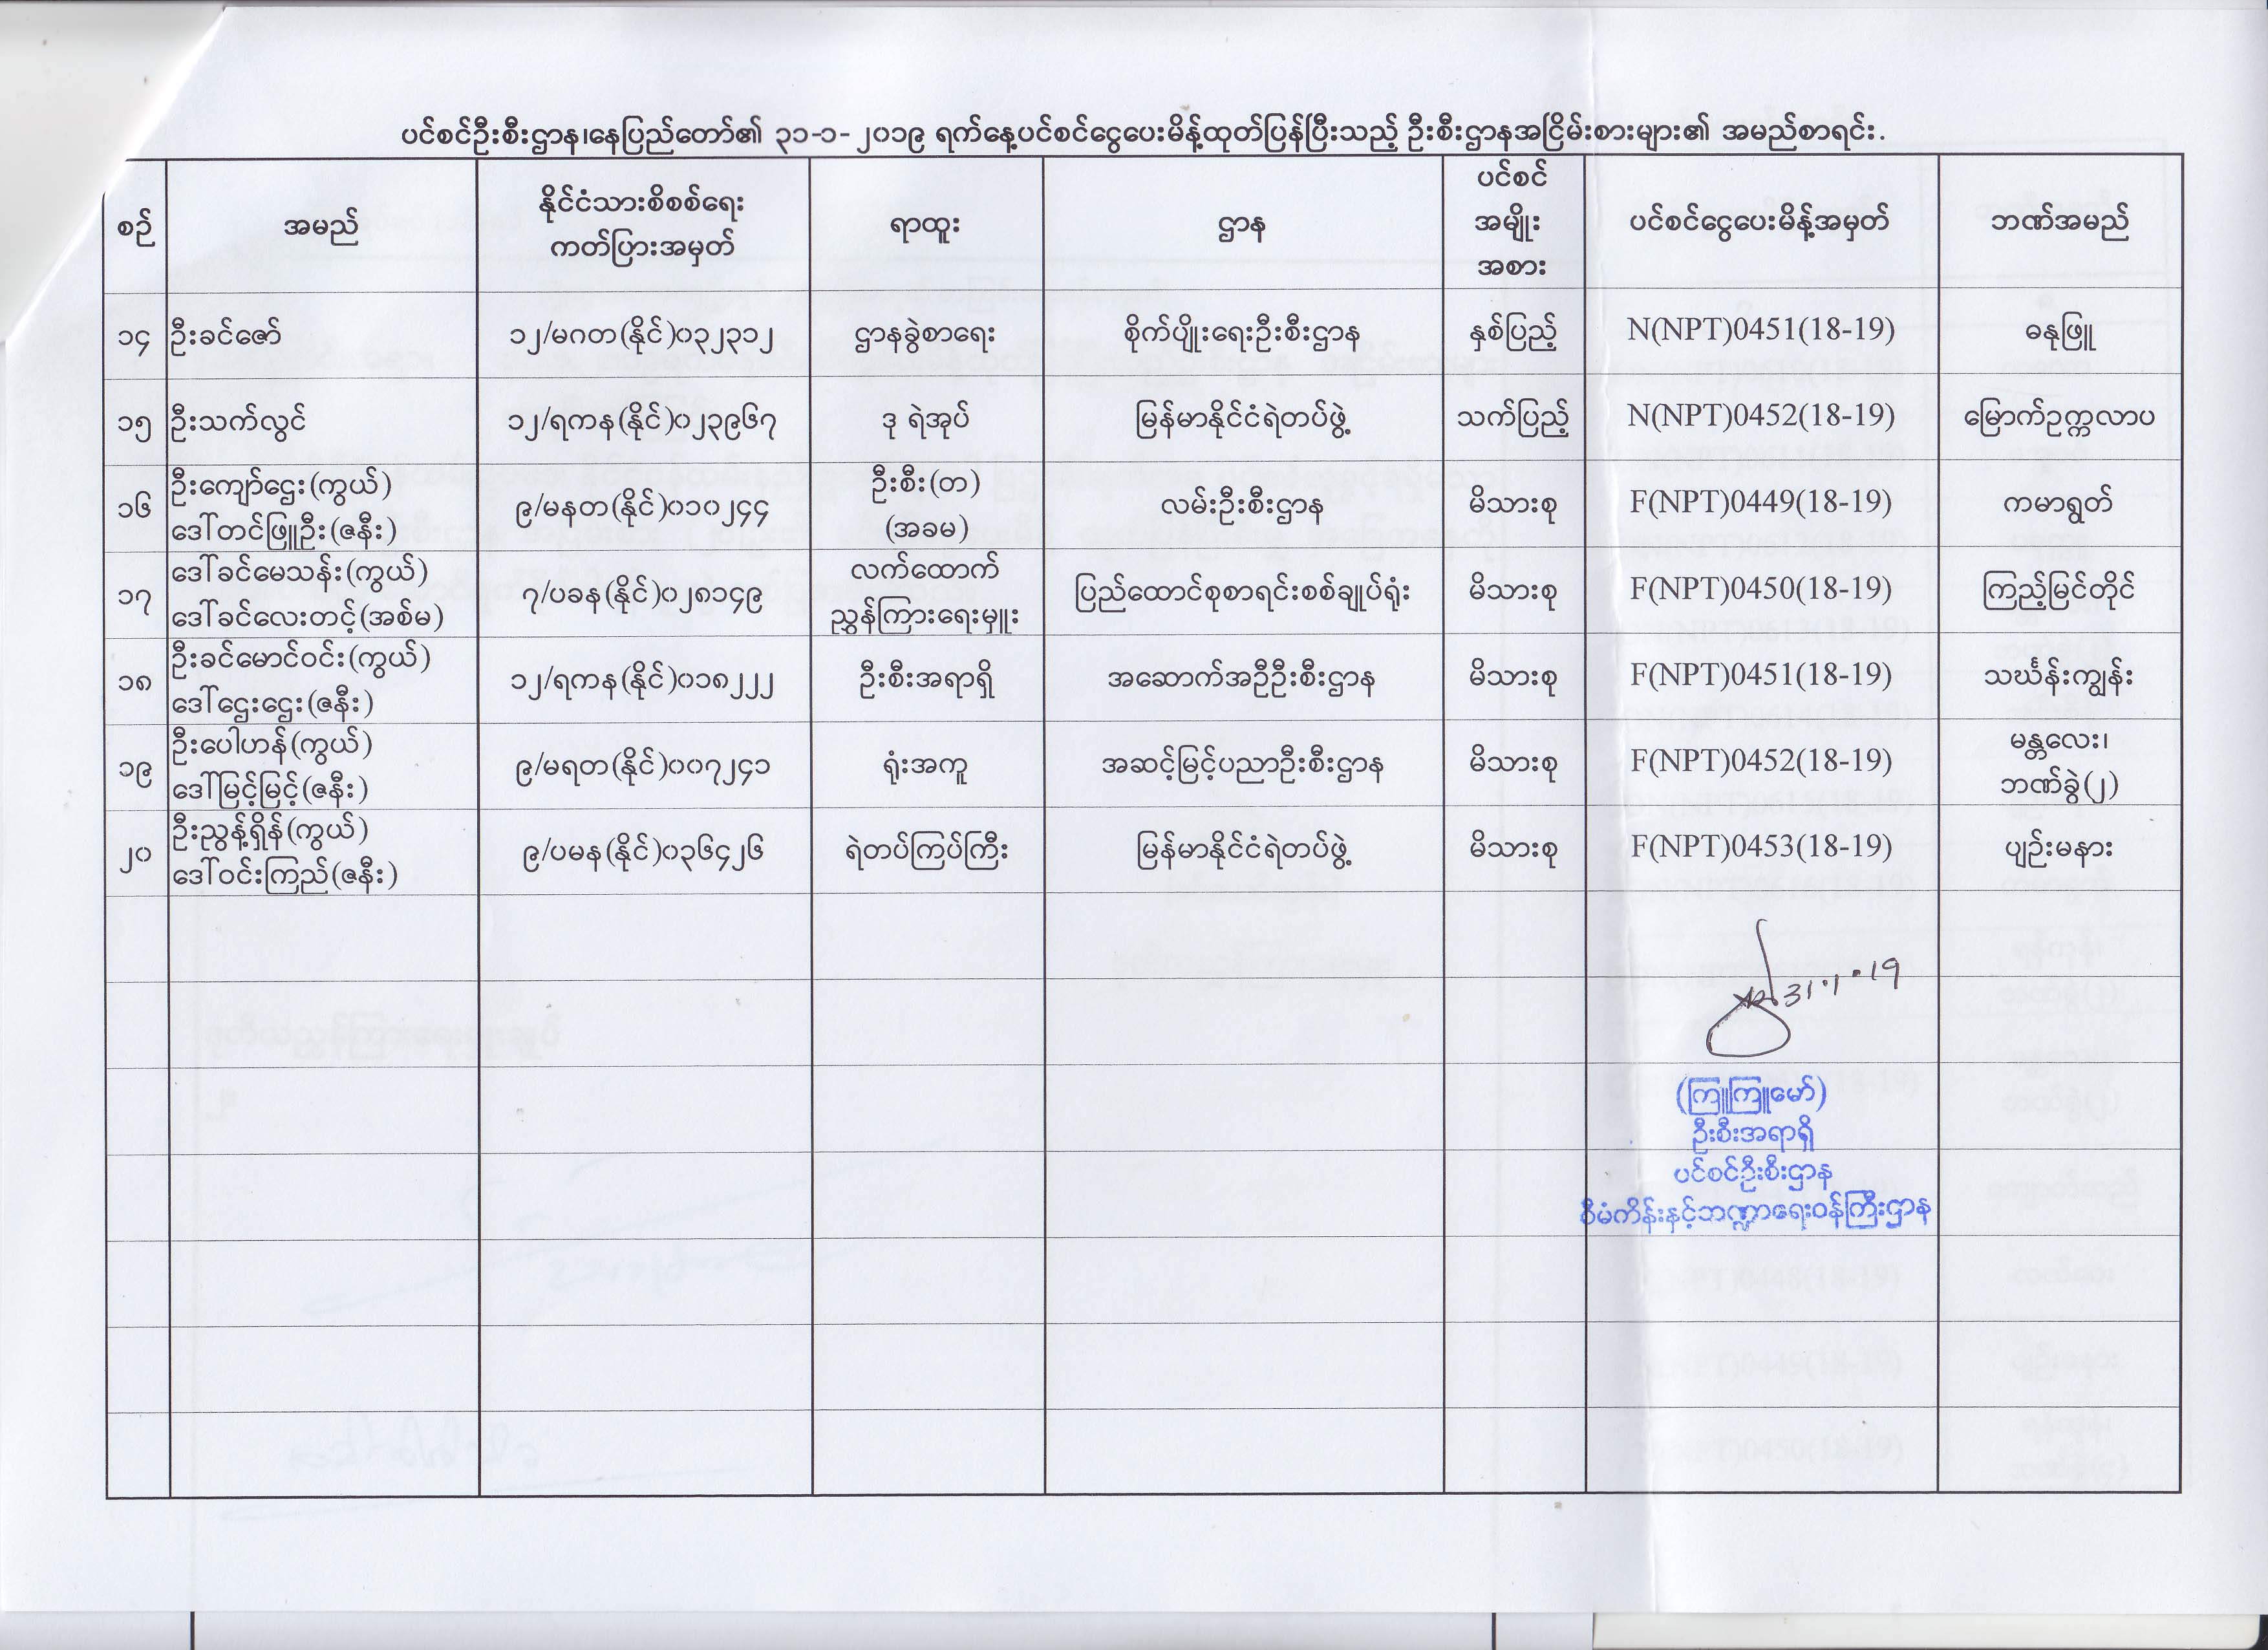 ပင်စင်ဦးစီးဌာန၊နေပြည်တော်၏ ၃၁-၁-၂၀၁၉ ရက်နေ့ပင်စင်ငွေပေးမိန့်ထုတ်ပြန်ပြီးသည့် ဦးစီးဌာနအငြိမ်းစားများ၏ အမည်စာရင်း.
စဉ် အမည် နိုင်ငံသားစိစစ်ရေး ကတ်ပြားအမှတ် ရာထူး ဌာန ပင်စင် အမျိုး အစား ပင်စင်ငွေပေးမိန့်အမှတ် ဘဏ်အမည်
၁၄ ဦးခင်ဇော် ၁၂/မဂတ(နိုင်)၀၃၂၃၁၂ ဌာနခွဲစာရေး စိုက်ပျိုးရေးဦးစီးဌာန နှစ်ပြည့် N(NPT)0451(18-19) ဓနုဖြူ
၁၅ ဦးသက်လွင် ၁၂/ရကန(နိုင်)၀၂၃၉၆၇ ဒု ရဲအုပ် မြန်မာနိုင်ငံရဲတပ်ဖွဲ့ သက်ပြည့် N(NPT)0452(18-19) မြောက်ဥက္ကလာပ
၁၆ ဦးကျော်ဌေး(ကွယ်) ဒေါ်တင်ဖြူဦး(ဇနီး) ၉/မနတ(နိုင်)၀၁၀၂၄၄ ဦးစီး(တ) (အခမ) လမ်းဦးစီးဌာန မိသားစု F(NPT)0449(18-19) ကမာရွတ်
၁၇ ဒေါ်ခင်မေသန်း(ကွယ်) ဒေါ်ခင်လေးတင့်(အစ်မ) ၇/ပခန(နိုင်)၀၂၈၁၄၉ လက်ထောက် ညွှန်ကြားရေးမှူး ပြည်ထောင်စုစာရင်းစစ်ချုပ်ရုံး မိသားစု F(NPT)0450(18-19) ကြည့်မြင်တိုင်
၁၈ ဦးခင်မောင်ဝင်း(ကွယ်) ဒေါ်ဌေးဌေး(ဇနီး) ၁၂/ရကန(နိုင်)၀၁၈၂၂၂ ဦးစီးအရာရှိ အဆောက်အဦဦးစီးဌာန မိသားစု F(NPT)0451(18-19) သင်္ဃန်းကျွန်း
၁၉ ဦးပေါဟန်(ကွယ်) ဒေါ်မြင့်မြင့်(ဇနီး) ၉/မရတ(နိုင်)၀၀၇၂၄၁ ရုံးအကူ အဆင့်မြင့်ပညာဦးစီးဌာန မိသားစု F(NPT)0452(18-19) မန္တလေး၊ ဘဏ်ခွဲ(၂)
၂၀ ဦးညွန့်ရှိန်(ကွယ်) ဒေါ်ဝင်းကြည်(ဇနီး) ၉/ပမန(နိုင်)၀၃၆၄၂၆ ရဲတပ်ကြပ်ကြီး မြန်မာနိုင်ငံရဲတပ်ဖွဲ့ မိသားစု F(NPT)0453(18-19) ပျဉ်းမနား
31.1.19
(ကြူကြူမော်)
ဦးစီးအရာရှိ
ပင်စင်ဦးစီးဌာန
စီမံကိန်းနှင့်ဘဏ္ဍာရေးဝန်ကြီးဌာန